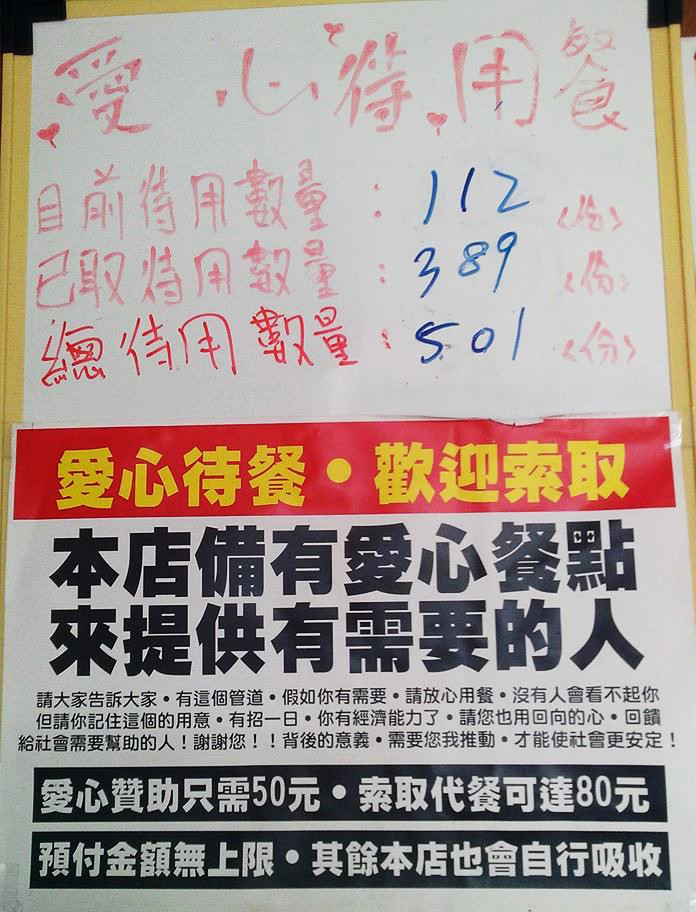 愛心待用餐
目前待用數量：112〈份〉
已取待用數量：389〈份〉
總待用數量：501〈份〉
愛心待餐•歡迎索取
本店備有愛心餐點
來提供有需要的人
請大家告訴大家•有這個管道•假如你有需要•請放心用餐•沒有人會看不起你
但請你記住這個的用意•有招一日•你有經濟能力了•請您也用回向的心•回饋
給社會需要幫助的人！謝謝您！！背後的意義•需要您我推動•才能使社會更安定！
愛心贊助只需50元•索取代餐可達80元
預付金額無上限•其餘本店也會自行吸收